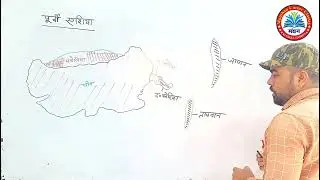 पूर्वी एशिया
मंगोलिया
चीन
जापान
द० कोरिया
ताइवान
मंथन